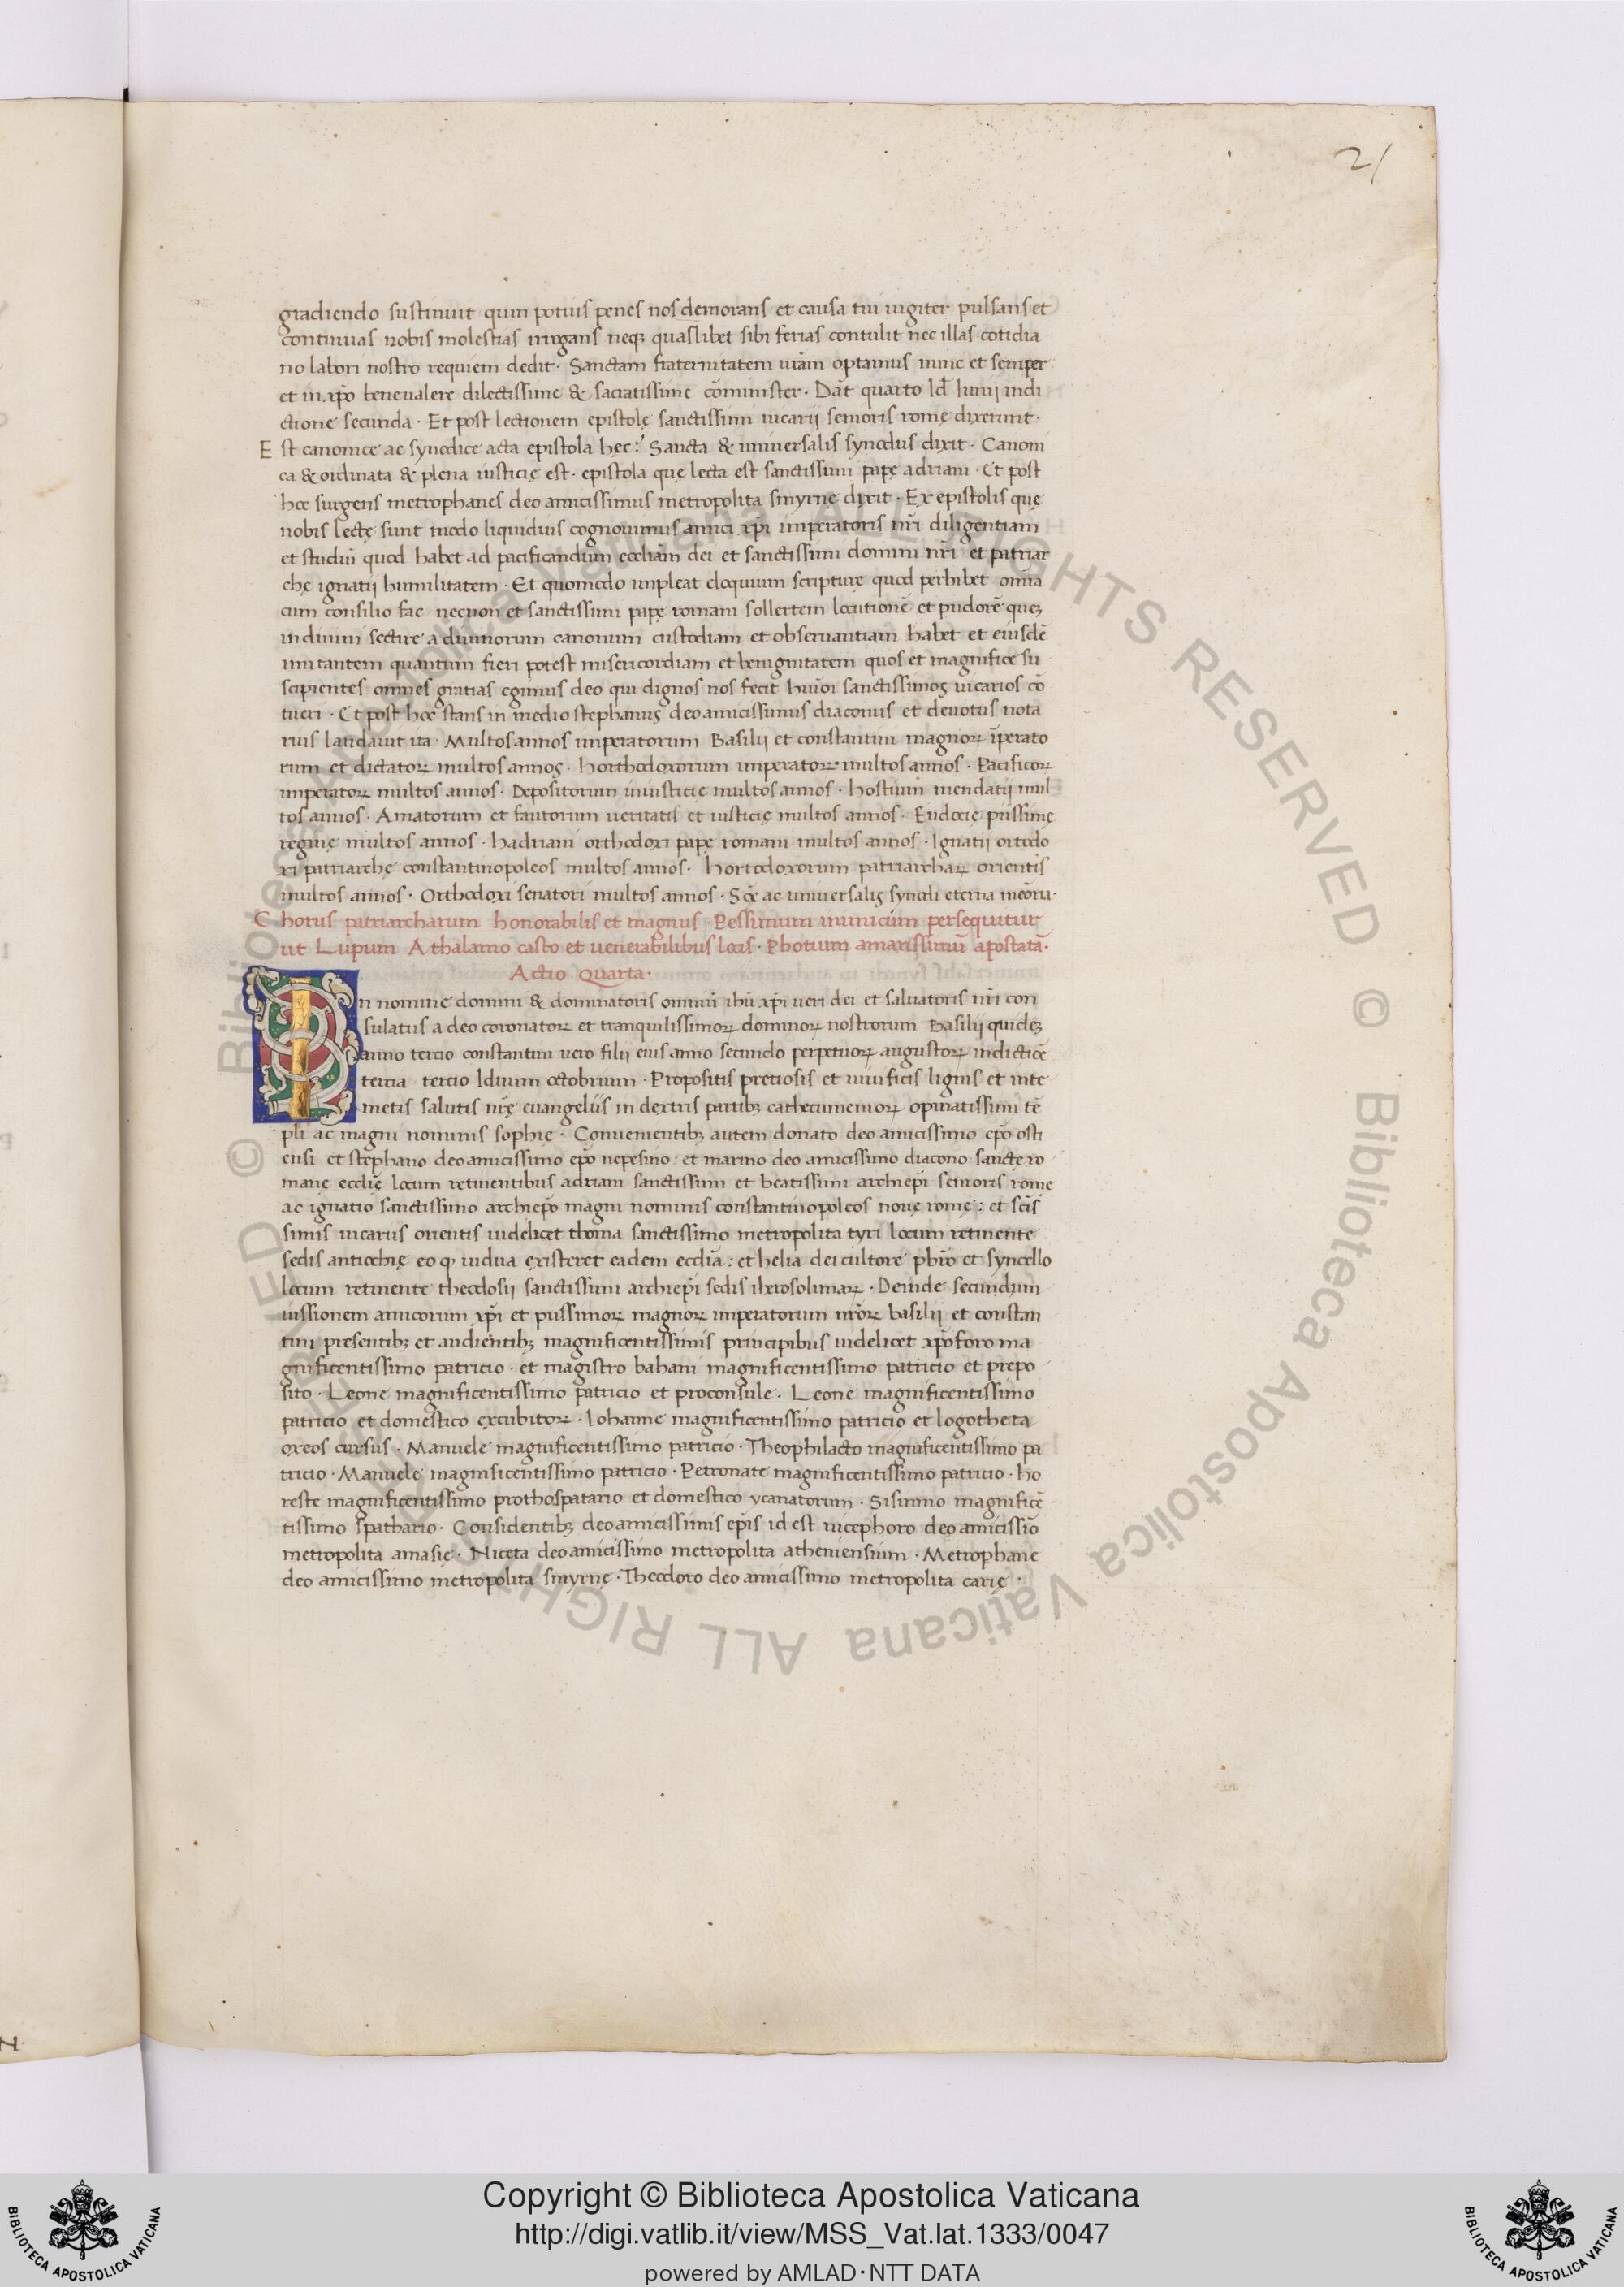 21
gradiendo sustinuit quin potius penes nos demorans et causa tui iugiter pulsans et
continuas nobis molestias irrogans neqꝫ quaslibet sibi ferias contulit nec illas cotidia
no labori nostro requiem dedit · Sanctam fraternitatem ur̄am optamus nunc et semper
et in xp̄o beneualere dilectissime & sacratissime cōminister · Dat̄ quarto Id̄ Iunij indi
ctione secunda · Et post lectionem epistolę sanctissimi uicarij senioris romę dixerunt ·
E st canonice ac synodice acta epistola hec: Sancta & uniuersalis synodus dixit · Canoni
ca & ordinata & plena iusticię est · epistola quę lecta est sanctissimi papę adriani · Et post
hoc surgens metrophanes deo amicissimus metropolita smyrnę dixit · Ex epistolis quę
nobis lectę sunt modo liquidius cognouimus amici xp̄i imperatoris nr̄i diligentiam
et studiū quod habet ad pacificandum eccliam̄ dei et sanctissimi domini nr̄i et patriar
chę ignatii humilitatem · Et quomodo impleat eloquium scripturę quod perhibet omnia
cum consilio fac necnon et sanctissimi papę romani sollertem locutionē et pudorē queꝫ
indiuini sectire a diuinorum canonum custodiam et obseruantiam habet et eiusdē
imitantem quantum fieri potest misericordiam et benignitatem quos et magnifice su
scipientes omnes gratias egimus deo qui dignos nos fecit huīoi sanctissimos uicarios cō
tueri · Et post hoc stans in medio stephanus deo amicissimus diaconus et deuotus nota
rius laudauit ita · Multos annos imperatorum Basilij et constantini magnoꝝ īperato
rum et dictatoꝝ multos annos · horthodoxorum imperatoꝝ multos annos · Pacificoꝝ
imperatoꝝ multos annos · Depositorum iniusticię multos annos · hostium mendatij mul
tos annos · Amatorum et fautorum ueritatis et iusticię multos annos · Eudocię piissimę
reginę multos annos · hadriani orthodoxi papę romani multos annos · Ignatii ortodo
xi patriarchę constantinopoleos multos annos · hortodoxorum patriarchaꝝ orientis
multos annos · Orthodoxi senatori multos annos · Sc̄ę ac uniuersalis synodi eterna meōria ·
Chorus patriarcharum honorabilis et magnus · Pessimum inimicum persequitur
ut Lupum A thalamo casto et uenerabilibus locis · Photium amarissimū apostatā ·
Actio Quarta ·
In nomine domini & dominatoris omniū ihū xp̄i ueri dei et saluatoris nr̄i con
sulatus a deo coronatoꝝ et tranquilissimoꝝ dominoꝝ nostrorum Basilij quideꝫ
anno tercio constantini uero filii eius anno secundo perpetuoꝝ augustoꝝ indictiōe
tercia tercio Iduum octobrium · Propositis preciosis et uiuificis lignis et inte
metis salutis nr̄ę euangeliis in dextris partibꝫ cathecumenioꝝ opinatissimi tē
pli ac magni nominis sophię · Conuenientibꝫ autem donato deo amicissimo ep̄o osti
ensi et stephano deo amicissimo ep̄o nepesino · et marino deo amicissimo diacono sancte ro
manę ecclię̄ locum retinentibus adriani sanctissimi et beatissimi archiep̄i senioris romę
ac ignatio sanctissimo archiep̄o magni nominis constantinopoleos nouę romę : et scīs
simis uicariis orientis uidelicet thoma sanctissimo metropolita tyri locum retinente
sedis antiochię eo qꝫ uidua existeret eadem ecclīa : et helia dei cultore pb̄ro et syncello
locum retinente theodosii sanctissimi archiep̄i sedis iherosolimaꝝ · Deinde secundum
iussionem amicorum xp̄i et piissimoꝝ magnoꝝ imperatorum nr̄oꝝ basilij et constan
tini presentibꝫ et audientibꝫ magnificentissimis principibus uidelicet xp̄oforo ma
gnificentissimo patricio · et magistro bahani magnificentissimo patricio et prepo
sito · Leone magnificentissimo patricio et proconsule · Leone magnificentissimo
patricio et domestico excubitoꝝ · Iohanne magnificentissimo patricio et logotheta
oxeos cursus · Manuele magnificentissimo patricio · Theophilacto magnificentissimo pa
tricio · Manuele magnificentissimo patricio · Petronate magnificentissimo patricio · ho
reste magnificentissimo prothospatario et domestico ycanatorum · Sisinnio magnificē
tissimo spathario · Considentibꝫ deo amicissimis ep̄is id est nicephoro deo amicissīo
metropolita amasię · Niceta deo amicissimo metropolita atheniensium · Metrophane
deo amicissimo metropolita smyrnę · Theodoro deo amicissimo metropolita carię ·
Copyright © Biblioteca Apostolica Vaticana
http://digi.vatlib.it/view/MSS_Vat.lat.1333/0047
powered by AMLAD·NTT DATA